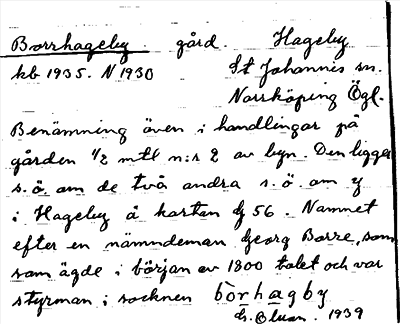 Borrhageby gård. Hageby
kb 1935. N 1930 St Johannis sn.
Norrköping Ögl.
Benämning även i handlingar på
gården 1/2 mtl n:r 2 av byn. Den ligger
s.ö. om de två andra s.ö. om y
i Hageby å kartan 56. Namnet
efter en nämndeman Georg Borre, som
som ägde i början av 1800 talet och var
styrman i socknen bòrhagby
1939